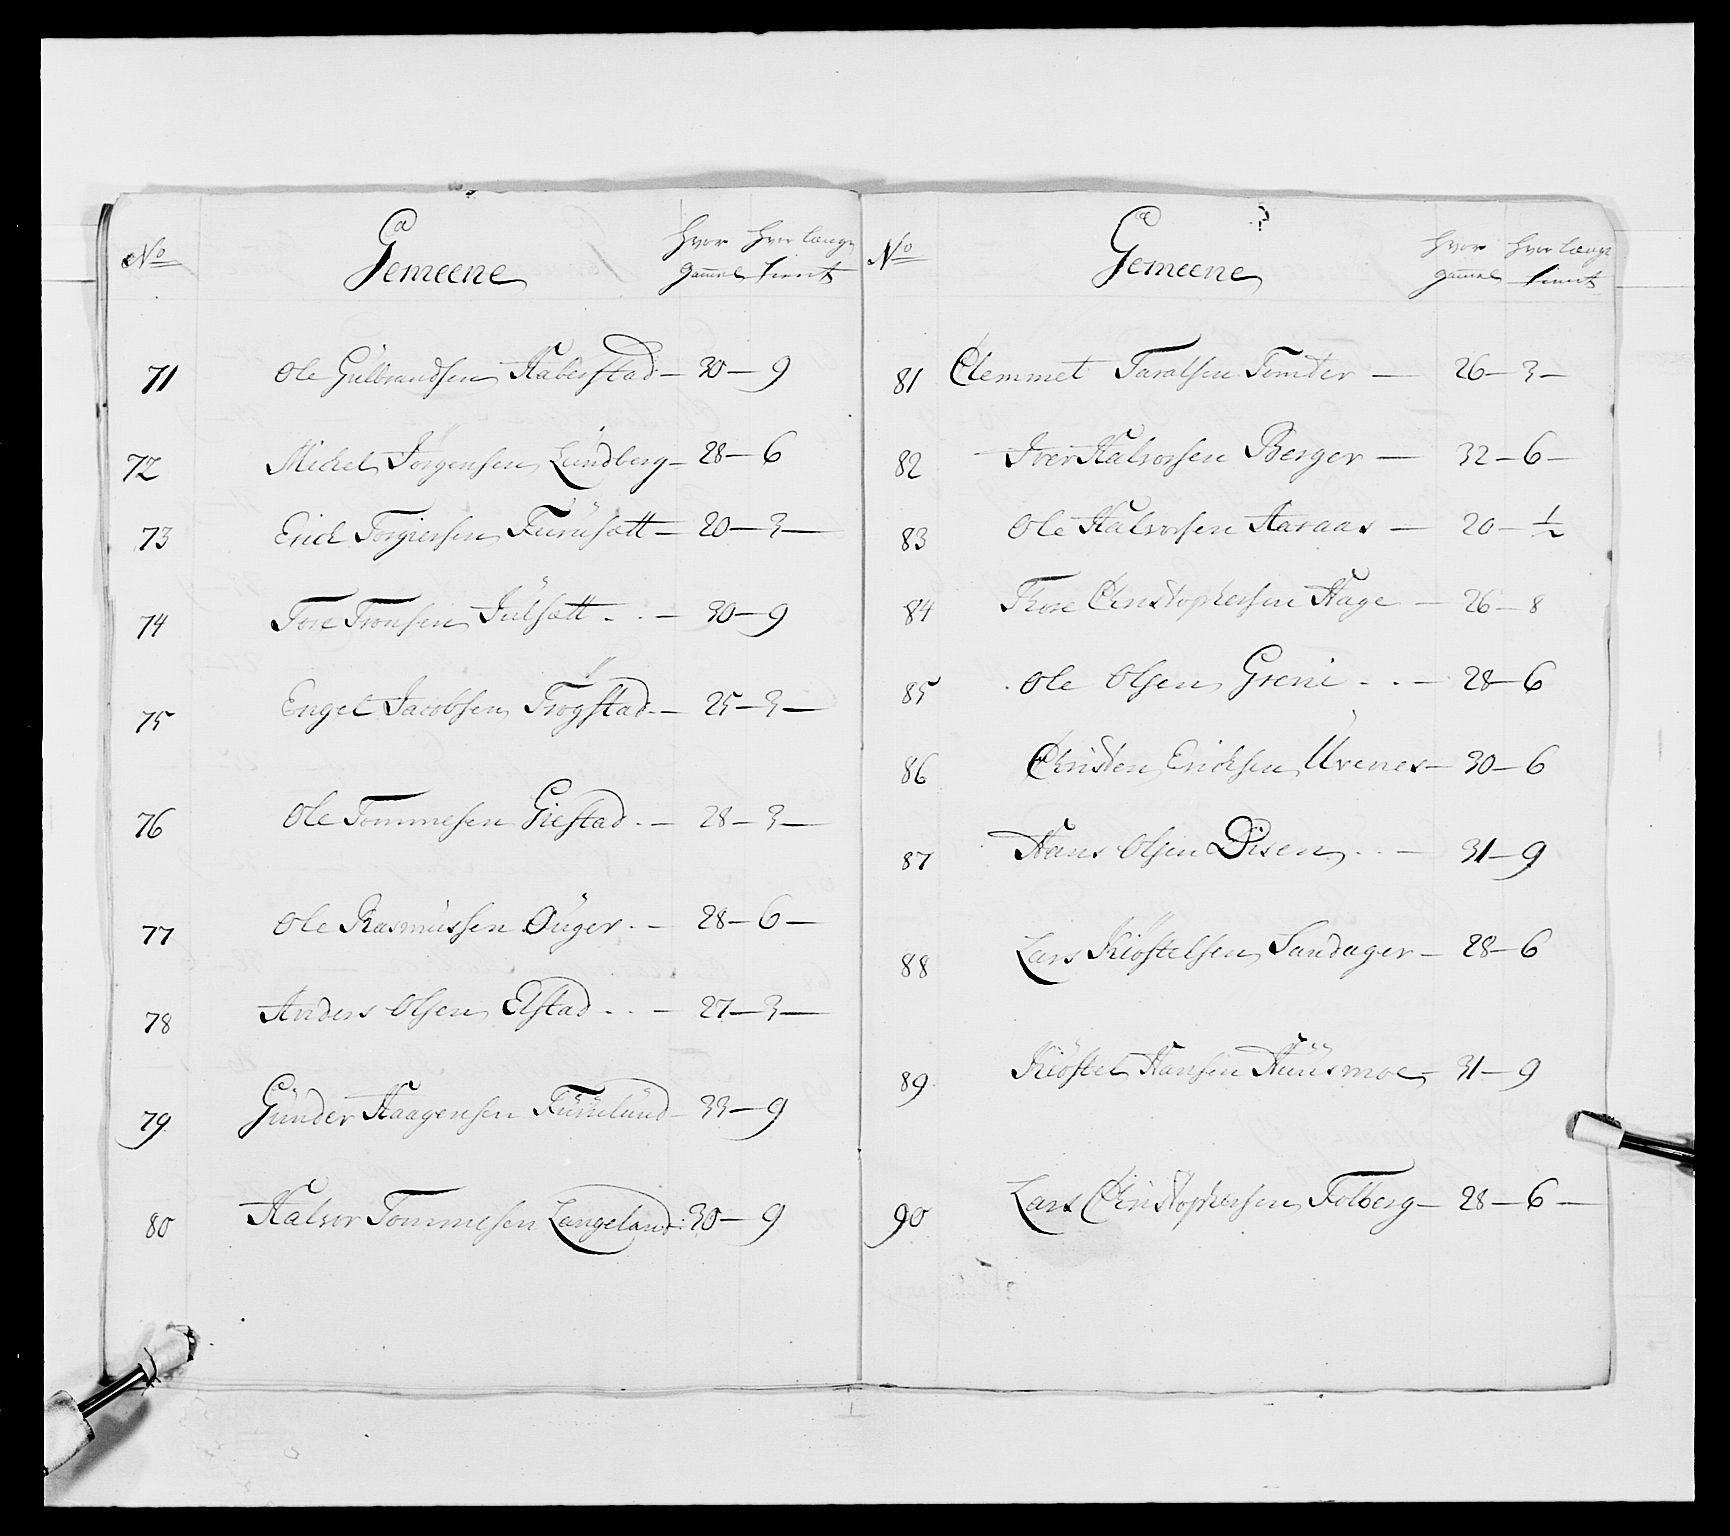 No Gemeene hvor gammel hvor længe tient
71 Ole Gulbrandsen Haberstad - 30 - 9
72 Michel Jörgensen Lundberg - 28 - 6
73 Erich Torgiersen Furusætt - 20 - 3 -
74 Tore Tronsen Julsætt - . - 30 - 9
75 Engel Jacobsen Trögstad - 25 - 3 -
76 Ole Tommesen Giestad . - 28 - 3 -
77 Ole Rasmussen Ouger . - 28 - 6 -
78 Anders Olsen Elstad . . - 27 - 3 -
79 Gunder Haagensen Furulund - 33 - 9
80 Halvor Tommesen Langeland : 30 - 9
No Gemeene hvor gammel hvor længe tient
81 Clemmet Taralsen Tomter - 26 - 3 -
82 Iver Halvorsen Berger - 32 - 6 -
83 Ole Halvorsen Aaraas - 20 - 1/2
84 Thore Christophersen Hage - 26 - 8
85 Ole Olsen Greni . . - 28 - 6
86 Christen Erichsen Urenes - 30 - 6
87 Hans Olsen Disen . . - 31 - 9
88 Lars Kiöstelsen Sandager - 28 - 6
89 Kiöstel Hansen Huusmoe - 31 - 9
90 Lars Christophersen Folberg - 28 - 6 -